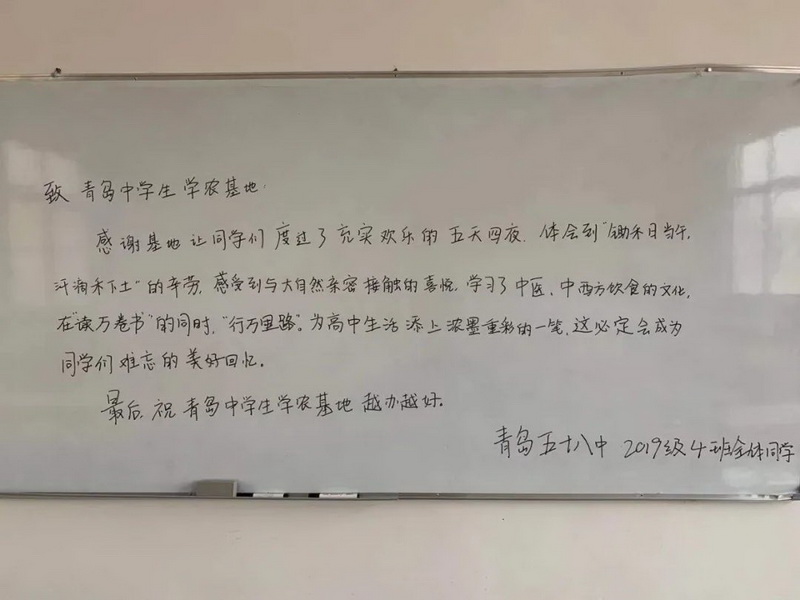 致 青岛中学生学农基地.
感谢基地让同学们度过了充实欢乐的五天四夜. 体会到"锄禾日当午,
汗滴禾下土"的辛劳, 感受到与大自然亲密接触的喜悦. 学习了中医、中西方饮食的文化,
在"读万卷书"的同时, "行万里路"。为高中生活添上浓墨重彩的一笔, 这必定会成为
同学们难忘的美好回忆。
最后, 祝青岛中学生学农基地越办越好.
青岛五十八中 2019级4班全体同学